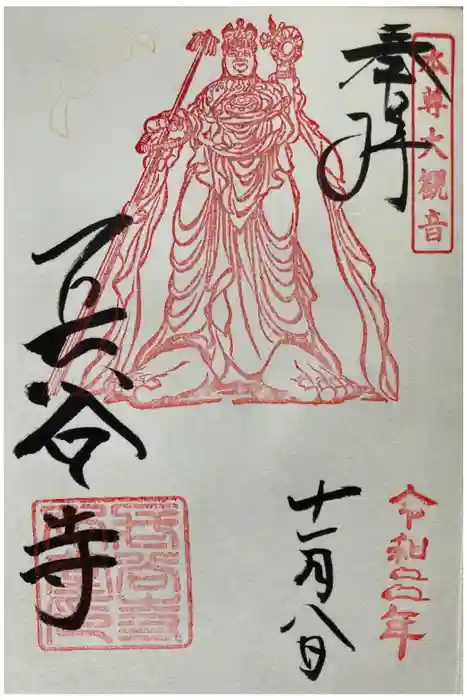 本尊大観音
奉拝
令和二年
十一月八日
長谷寺